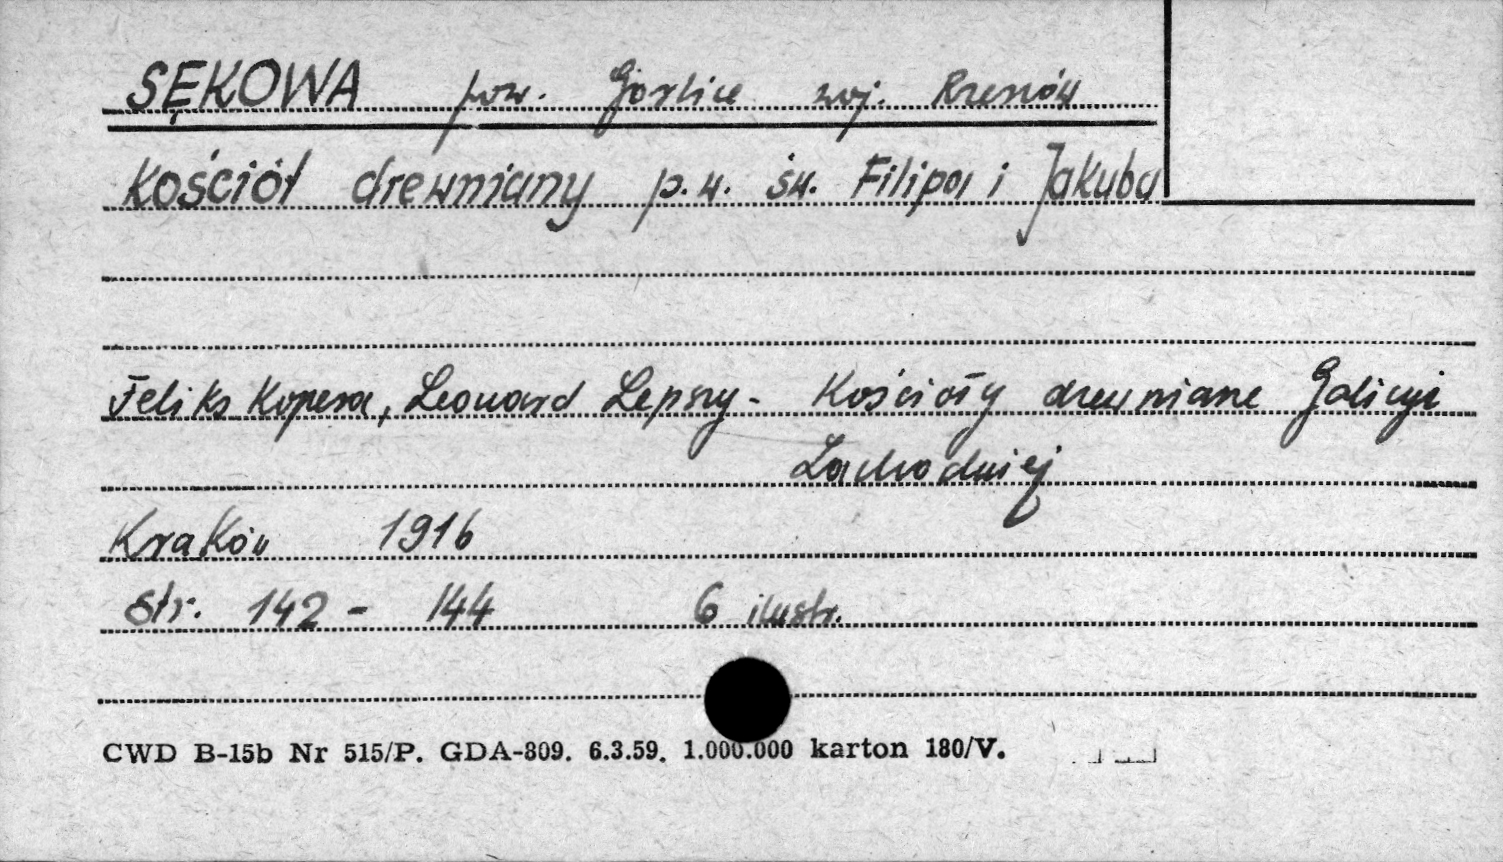 SĘKOWA pow. Gorlice woj. Rzeszów
Kościół drewniany p.w. św. Filipa i Jakuba
Feliks Kopera, Leonard Lepszy - Kościoły drewniane Galicyi
Zachodniej
Kraków 1916
str. 142 - 144 6 ilustr.
CWD B-15b Nr 515/P. GDA-809. 6.3.59. 1.000.000 karton 180/V.